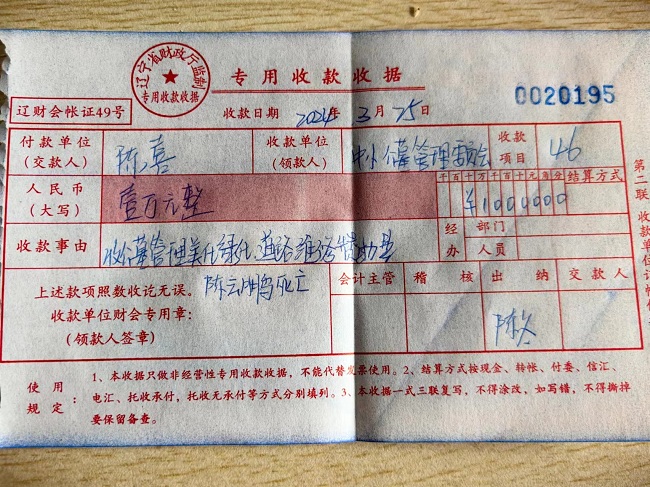 辽宁省财政厅监制
专用收款收据
专用收款收据
0020195
辽财会帐证49号
收款日期 2024年3月25日
付款单位 陈喜 收款单位 收款 46
(交款人) (领款人) 管理委员会 项目
人民币 壹万元整 千百十万千百十元角分 结算方式
(大写) ¥1000000
收款事由 收 管理美化绿化、道路维修 经 部门
办 人员
上述款项照数收讫无误。 陈云 死亡 会计主管 稽核 出纳 交款人
收款单位财会专用章:
(领款人签章) 陈
使用 1、本收据只做非经营性专用收款收据,不能代替发票使用。2、结算方式按现金、转帐、付委、信汇、
规定: 电汇、托收承付,托收无承付等方式分别填列。3、本收据一式三联复写,不得涂改,如写错,不得撕掉
要保留备查。
第二联 收款单位